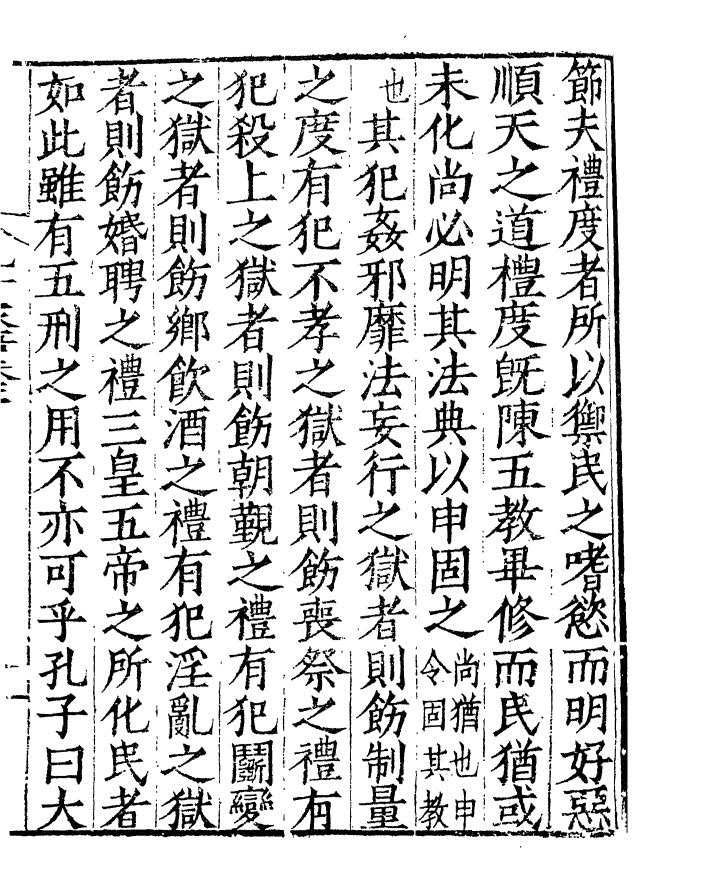 節夫禮度者所以禦民之嗜慾而明好惡
順天之道禮度旣陳五教畢修而民猶或
未化尚必明其法典以申固之尚猶也申令固其教
也其犯姦邪靡法妄行之獄者則飭制量
之度有犯不孝之獄者則飭喪祭之禮有
犯殺上之獄者則飭朝覲之禮有犯鬭變
之獄者則飭鄉飲酒之禮有犯淫亂之獄
者則飭婚聘之禮三皇五帝之所化民者
如此雖有五刑之用不亦可乎孔子曰大